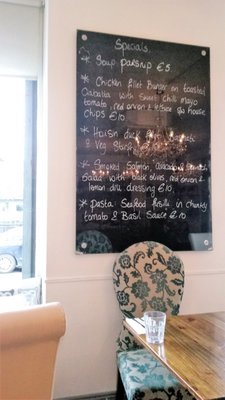 Specials.
* Soup parsnip €5
* Chicken fillet Burger on toasted
Ciabatta with Sweet Chilli mayo
tomato, red onion & lettuce house
chips €10.
* Hoisin duck
& Veg Stir
* Smoked Salmon, avocado &
Salad with black olives, red onion &
lemon dill dressing €10.
* pasta: Seafood in chunky
tomato & Basil Sauce €10